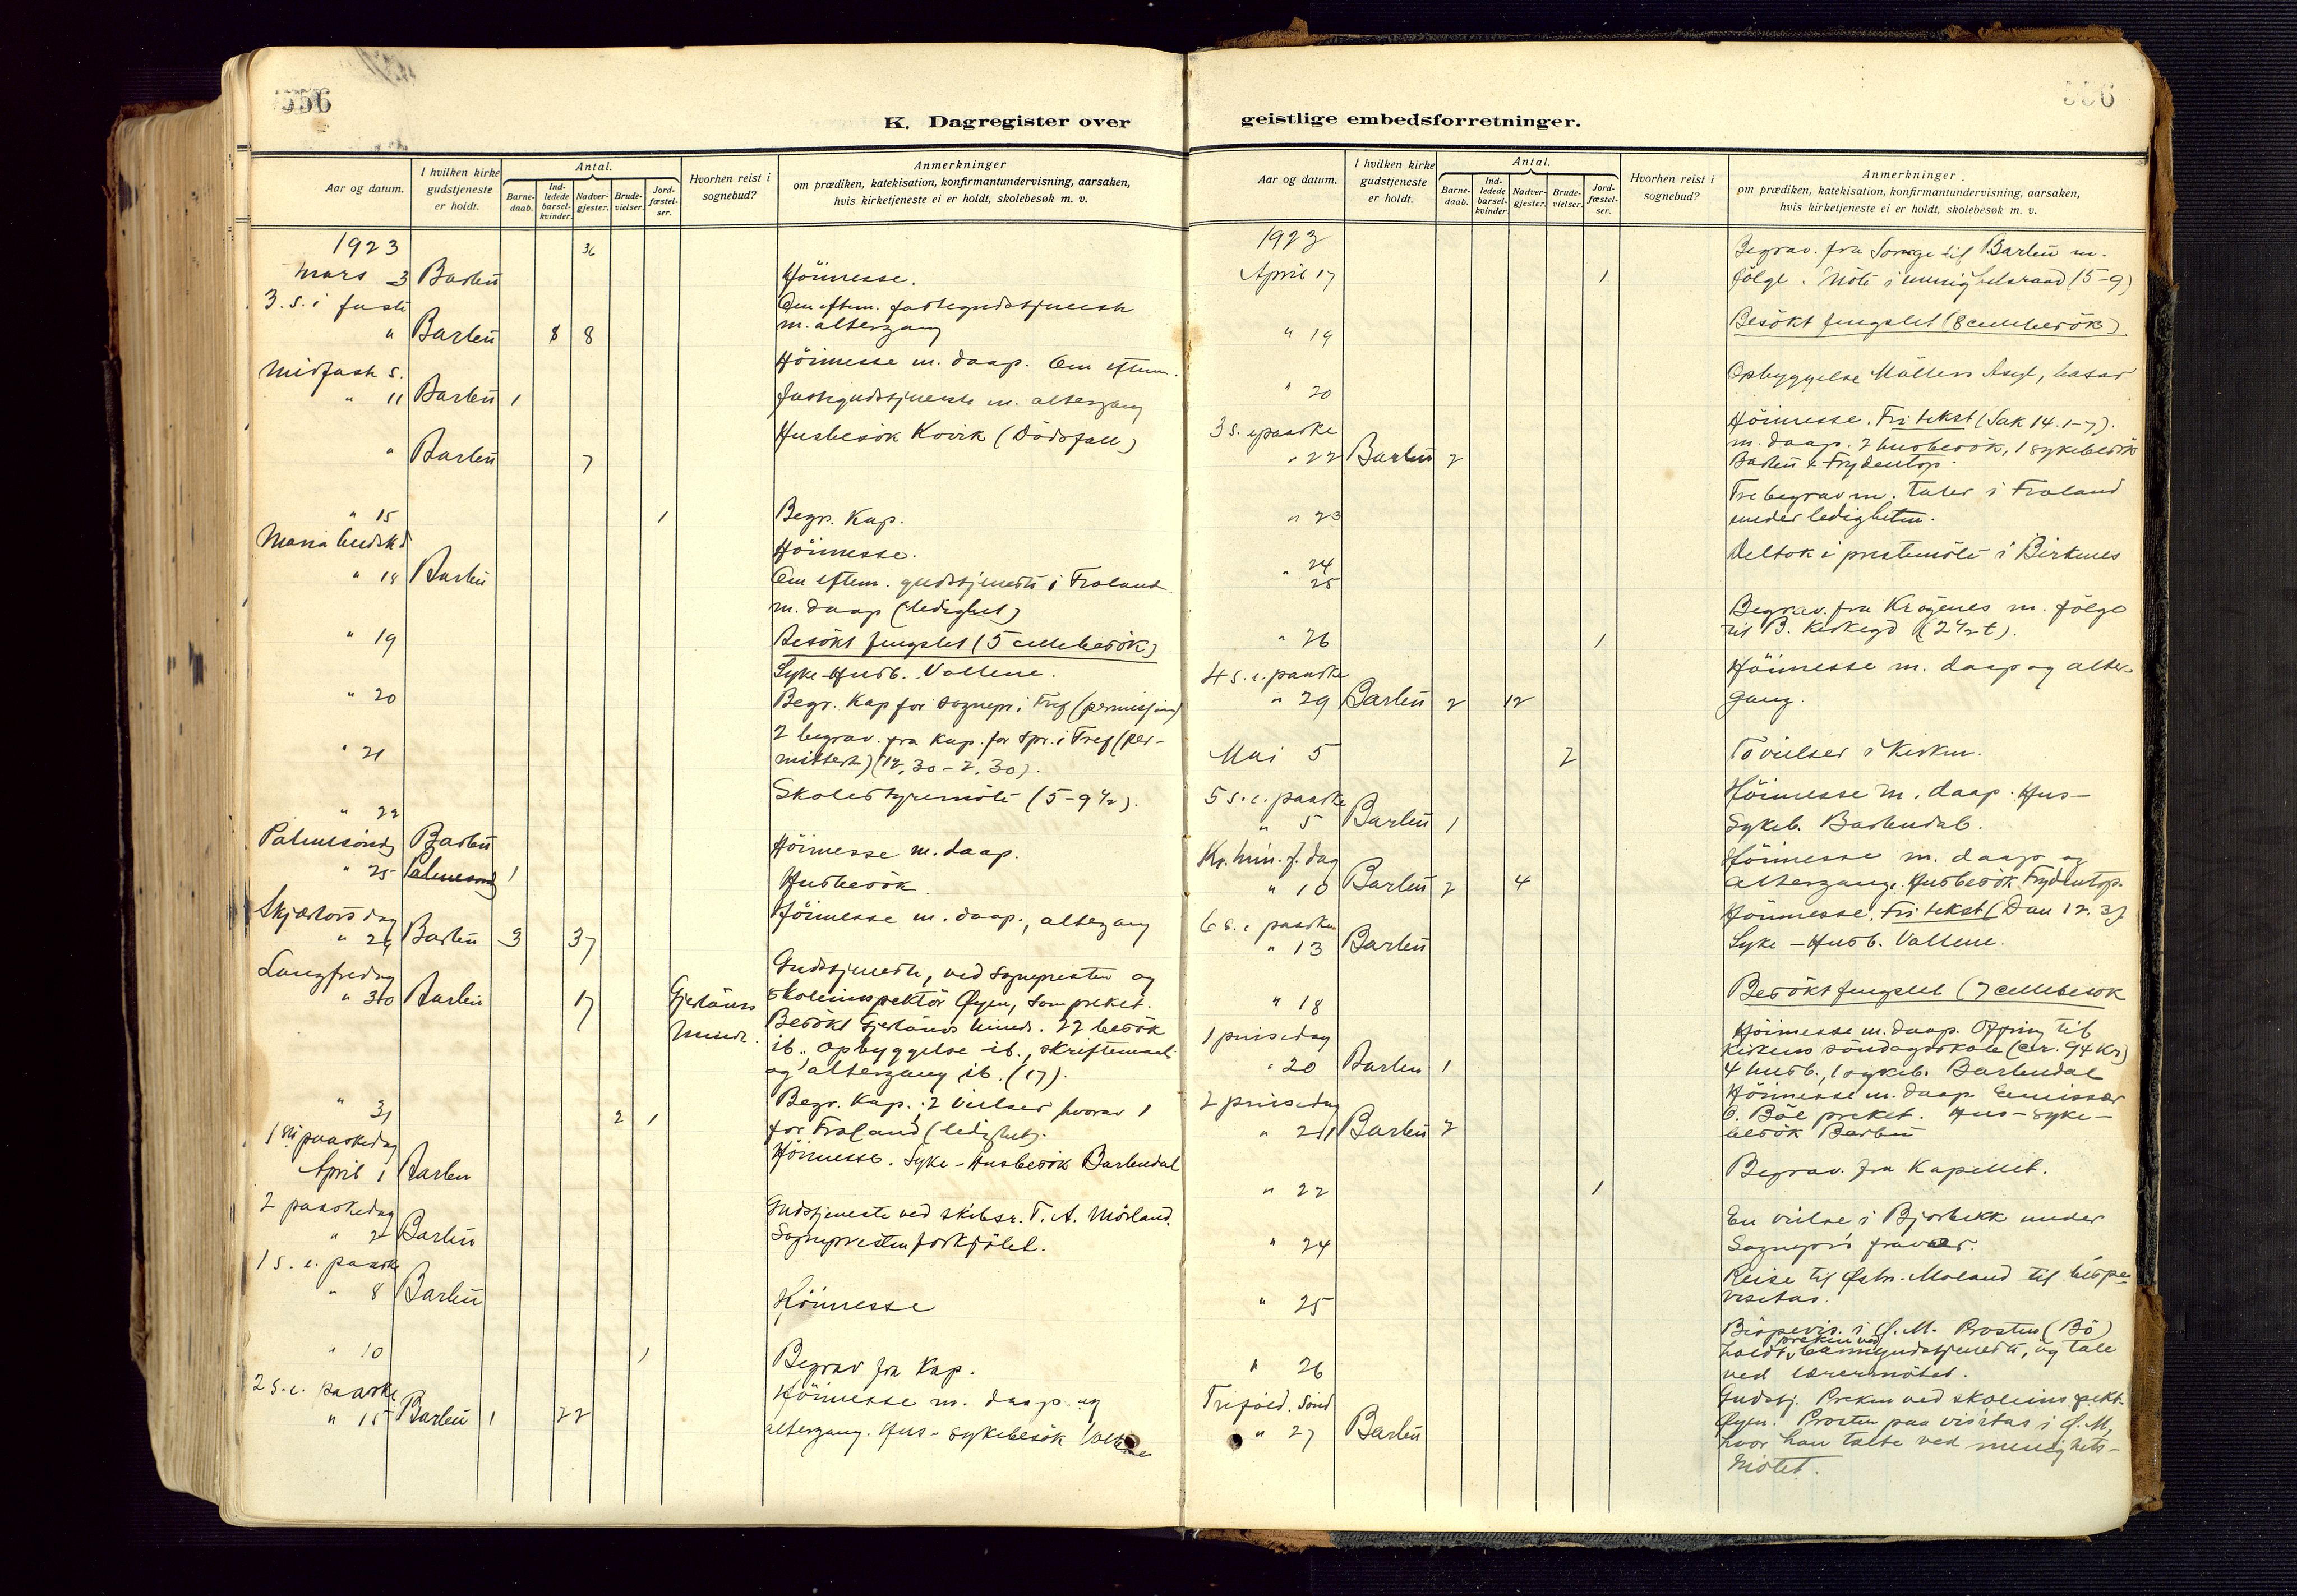 556
K. Dagregister over
Aar og datum.
I hvilken kirke gudstjeneste er holdt.
Antal.
Barne-daab.
Ind-ledede barsel-kvinder.
Nadver-gjester.
Brude-vielser.
Jord-fæstel-ser.
Hvorhen reist i sognebud?
Anmerkninger
om prædiken, katekisation, konfirmantundervisning, aarsaken,
hvis kirketjeneste ei er holdt, skolebesøk m. v.
1923 36
mars 3 Barbu Höimesse.
3. s. i faste Om eftm. fastegudstjeneste
" Barbu 8 8 m. altergang
Midfaste s. Höimesse m. daap. Om eftm.
" 11 Barbu 1 fastegudstjeneste m. altergang
" Barbu 7 Husbesök Kovik (Dödsfall)
" 15 1 Begr. Kap.
Maria budsk d Höimesse.
" 18 Barbu Om eftm. gudstjeneste i Froland
m. daap (ledighet)
" 19 Besökt fengslet (5 cellebesök)
Syke-Husb. Vollene.
" 20 Begr. Kap for sognepr. i Tref (permisjon)
" 21 2 begrav. fra Kap. for spr. i Tref (per-
mittert) (12,30 – 2,30).
" 22 Skolestyremöte (5-9 1/2).
Palmesöndg Barbu Höimesse m. daap.
" 25 Palmesöndg 1 Husbesök.
Skjærtorsdag Höimesse m. daap, altergang
" 29 Barbu 3 37
Langfredag Gudstjeneste, ved sognepresten og
" 30 Barbu 17 Gjerlöws skoleinspektör Øyen, som preket.
Minde. Besökt Gjerlöws Minde. 22 besök
ib., opbyggelse ib., skriftemaal
og altergang ib. (17).
" 31 2 1 Begr. Kap.; 2 vielser hvorav 1
for Froland (ledighet).
1ste paaskedag
April 1 Barbu Höimesse. Syke-Husbesök Barbudal
2 paaskedag Gudstjeneste ved skibsr. T. A. Mörland.
" 2 Barbu Sognepresten forkjölet.
1 s. e. paaske
" 8 Barbu Höimesse
" 10 1 Begrav fra Kap.
2 s. e. paaske Höimesse m. daap og
" 15 Barbu 1 22 altergang. Hus-sykebesök Vollene
556
geistlige embedsforretninger.
Aar og datum.
I hvilken kirke gudstjeneste er holdt.
Antal.
Barne-daab.
Ind-ledede barsel-kvinder
Nadver-gjester.
Brude-vielser.
Jord-fæstel-ser.
Hvorhen reist i sognebud?
Anmerkninger.
om prædiken, katekisation, konfirmantundervisning, aarsaken,
hvis kirketjeneste ei er holdt, skolebesøk m. v.
1923 Begrav. fra Songe til Barbu m.
April 17 1 fölge. Möte i menighetsraad (5-9)
" 19 Besökt fengslet (8 cellebesök)
" 20 Opbyggelse Möllers Asyl, basar
3 s. e paaske Höimesse. Fri tekst (Sak 14. 1-7).
" 22 Barbu 2 m. daap. 2 husbesök, 1 sykebesök
Barbu & Frydentop.
" 23 Tre begrav m. taler i Froland
under ledigheten.
" 24 Deltok i prestemöte i Birkenes
25
" 26 1 Begrav. fra Krögenes m. fölge
til B. Kirkegd (2 1/2 t).
4 s. e. paaske Höimesse m. daap og alter-
" 29 Barbu 2 12 gang.
Mai 5 2 To vielser i Kirken.
5 s. e. paaske Höimesse m. daap. Hus-
" 5 Barbu 1 Sykeb. Barbudal.
Kr. him. f. dag Höimesse m. daap og
" 10 Barbu 2 4 altergang. Husbesök Frydentop.
6 s. e paaske Höimesse. Fri tekst (Dan 12. 3)
" 13 Barbu Syke-Husb. Vollene.
" 18 Besökt fengslet (7 cellebesök
1 pinsedag Höimesse m. daap. Offring til
" 20 Barbu 1 Kirkens söndagsskole (cir. 94 Kr)
4 husb., 1 sykeb. Barbudal
2 pinsedag Höimesse m. daap. Emissær
" 21 Barbu 2 O. Böe preket. Hus-syke-
besök Barbu
" 22 1 Begrav. fra Kapellet.
" 24 En vielse i Bjorbekk under
Sognepr's fravær.
" 25 Reise til Østre Moland til bispe
visitas.
" 26 Bispevis. i Ø. M. Prosten (Bö)
holdt preken ved barnegudstjeneste, og tale
ved lærermötet.
Trefold. Sönd Gudstj. Preken ved skoleinspekt.
" 27 Barbu Øyen. Prosten paa visitas i Ø. M,
hvor han talte ved menighets-
mötet.